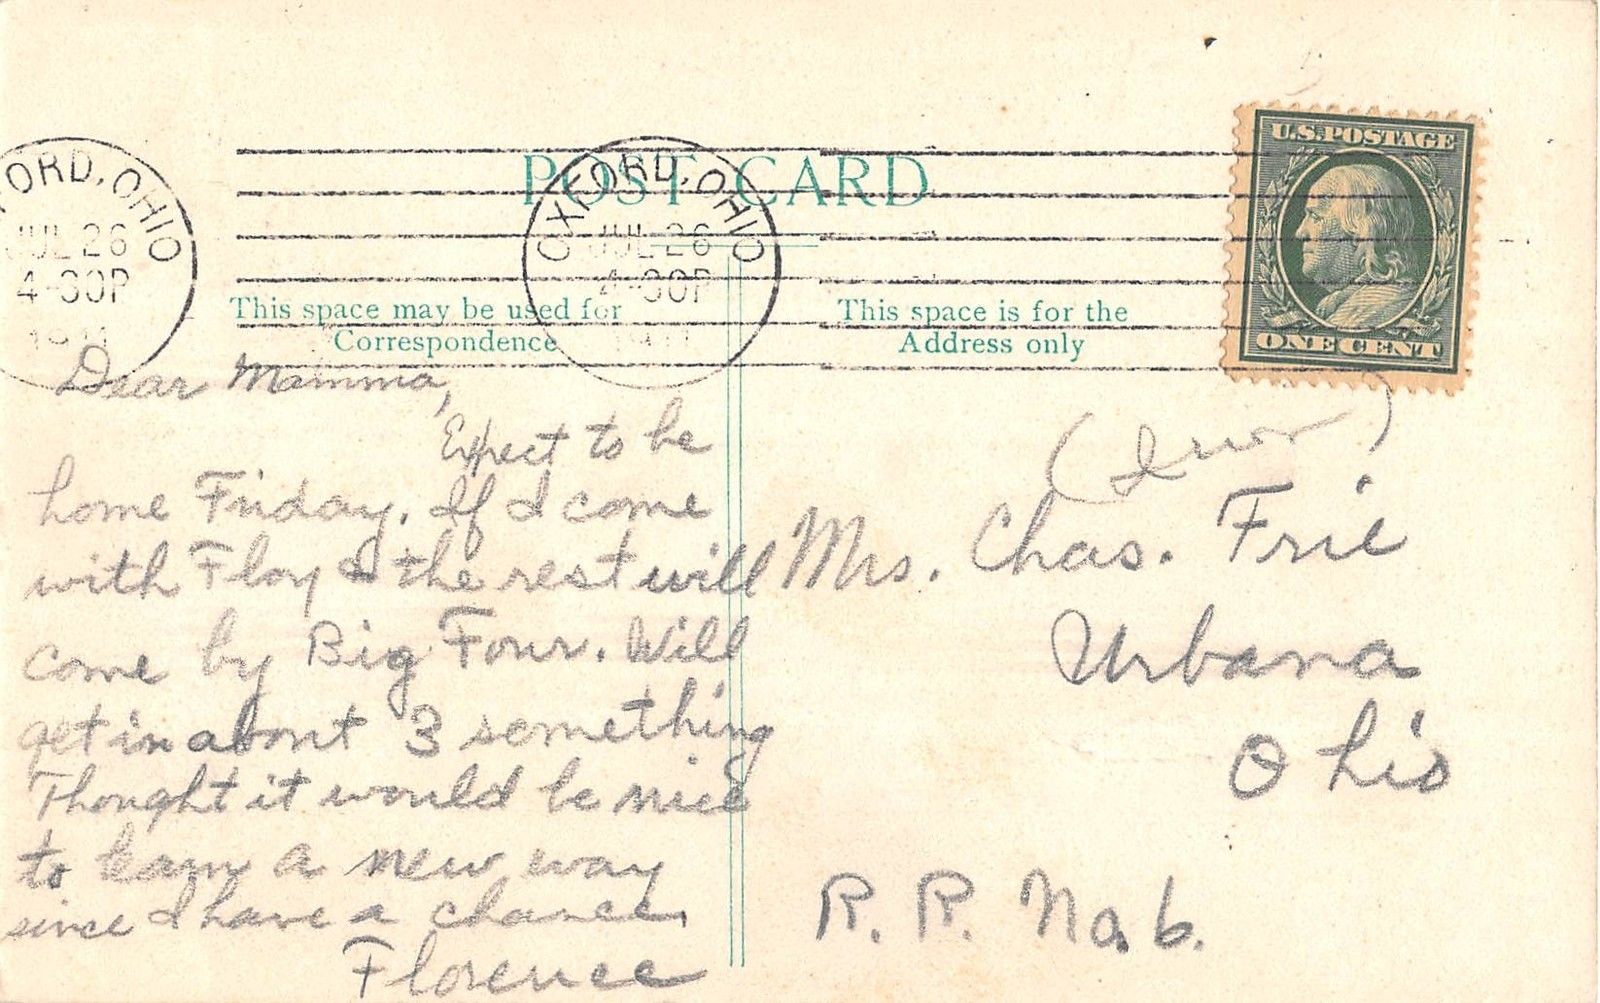 POST CARD
U.S. POSTAGE
ONE CENT
OXFORD, OHIO
JUL 26
4-30P
1911
FORD, OHIO
JUL 26
4-30P
1911
This space may be used for
Correspondence
This space is for the
Address only
Dear Mamma,
Expect to be
home Friday. If I come
with Floy & the rest will
come by Big Four. Will
get in about 3 something
Thought it would be nice
to learn a new way
since I have a chance.
Florence
Mrs. Chas. Frie
Urbana
Ohio
R. R. No. 6.